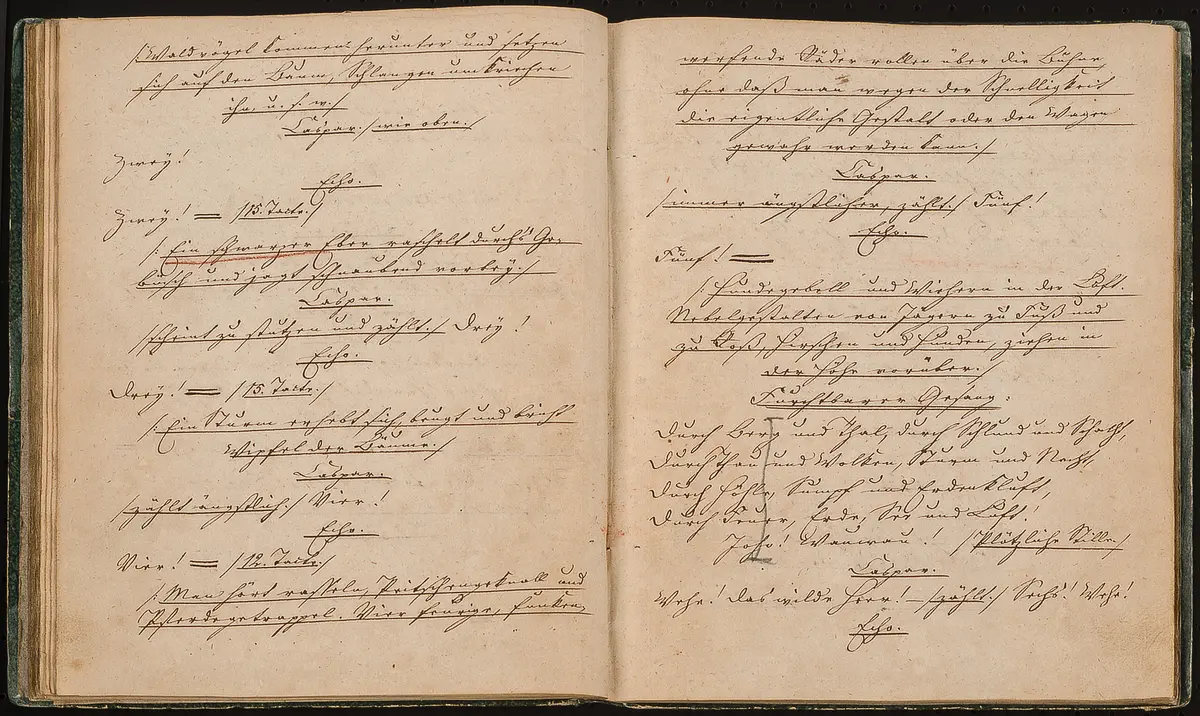 /: Waldvögel kommen herunter und setzen
sich auf den Baum, Schlangen umkriechen
ihn, u. s. w. /
Caspar. /: wie oben. /
Zwey!
Echo.
Zwey! = /: 15. Tacte. /
/: Ein schwarzer Eber raschelt durch's Ge-
büsch und jagt schnaubend vorbey. /
Caspar.
/: scheint zu stutzen und zählt: / Drey!
Echo.
Drey! = /: 15. Tacte. /
/: Ein Sturm erhebt sich, beugt und bricht
Wipfel der Bäume. /
Caspar.
/: zählt ängstlich: / Vier!
Echo.
Vier! = /: 12. Tacte. /
/: Man hört rasseln, Peitschengeknall und
Pferdegetrappel. Vier feurige, funken-
werfende Räder rollen über die Bühne,
ohne daß man wegen der Schnelligkeit
die eigentliche Gestalt oder den Wagen
gewahr werden kann. /
Caspar.
/: immer ängstlicher, zählt: / Fünf!
Echo.
Fünf! =
/: Hundegebell und Wiehern in der Luft.
Nebelgestalten von Jägern zu Fuß und
zu Roß, Hirschen und Hunden, ziehen in
der Höhe vorüber. /
Furchtbarer Gesang:
Durch Berg und Thal, durch Schlund und Schacht
Durch Thau und Wolken, Sturm und Nacht,
Durch Höhle, Sumpf und Erdenkluft,
Durch Feuer, Erde, See und Luft!
Joho! Wauwau! /: Plötzliche Stille. /
Caspar.
Wehe! das wilde Heer! – /: zählt: / Sechs! Wehe!
Echo.